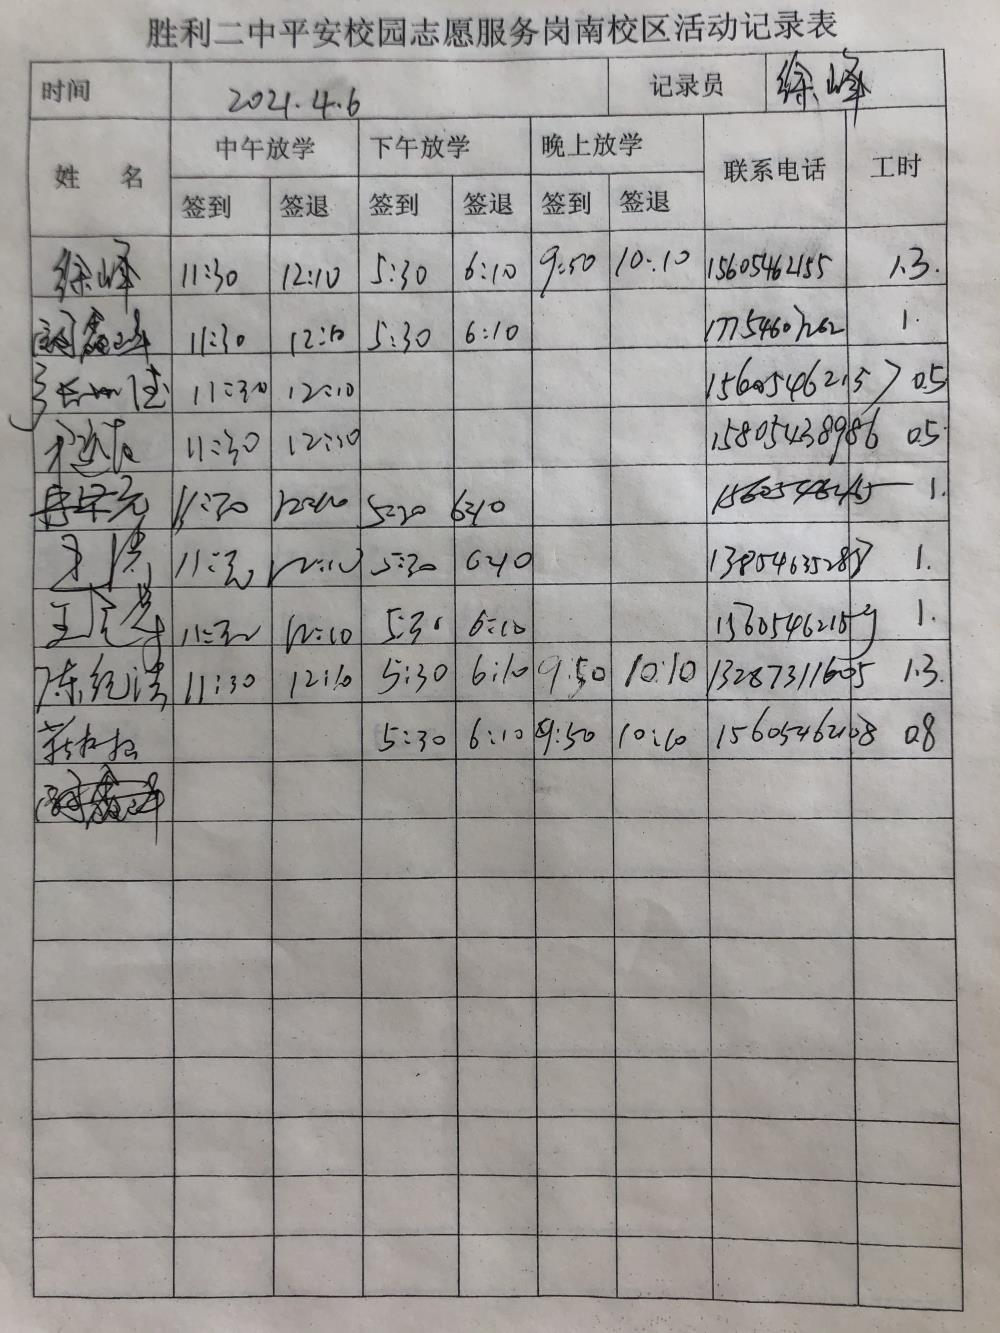 胜利二中平安校园志愿服务岗南校区活动记录表
时间 2021.4.6 记录员 徐峰
姓 名 中午放学 下午放学 晚上放学 联系电话 工时
签到 签退 签到 签退 签到 签退
徐峰 11:30 12:10 5:30 6:10 9:50 10:10 15605462155 1.3.
11:30 12:10 5:30 6:10 1.
11:30 12:10 0.5
11:30 12:10 15805438986 0.5
11:30 12:10 5:30 6:10 1.
11:30 12:10 5:30 6:10 1.
11:30 12:10 5:30 6:10 1.
陈纪清 11:30 12:10 5:30 6:10 9:50 10:10 13287311605 1.3.
5:30 6:10 9:50 10:10 15605462108 0.8